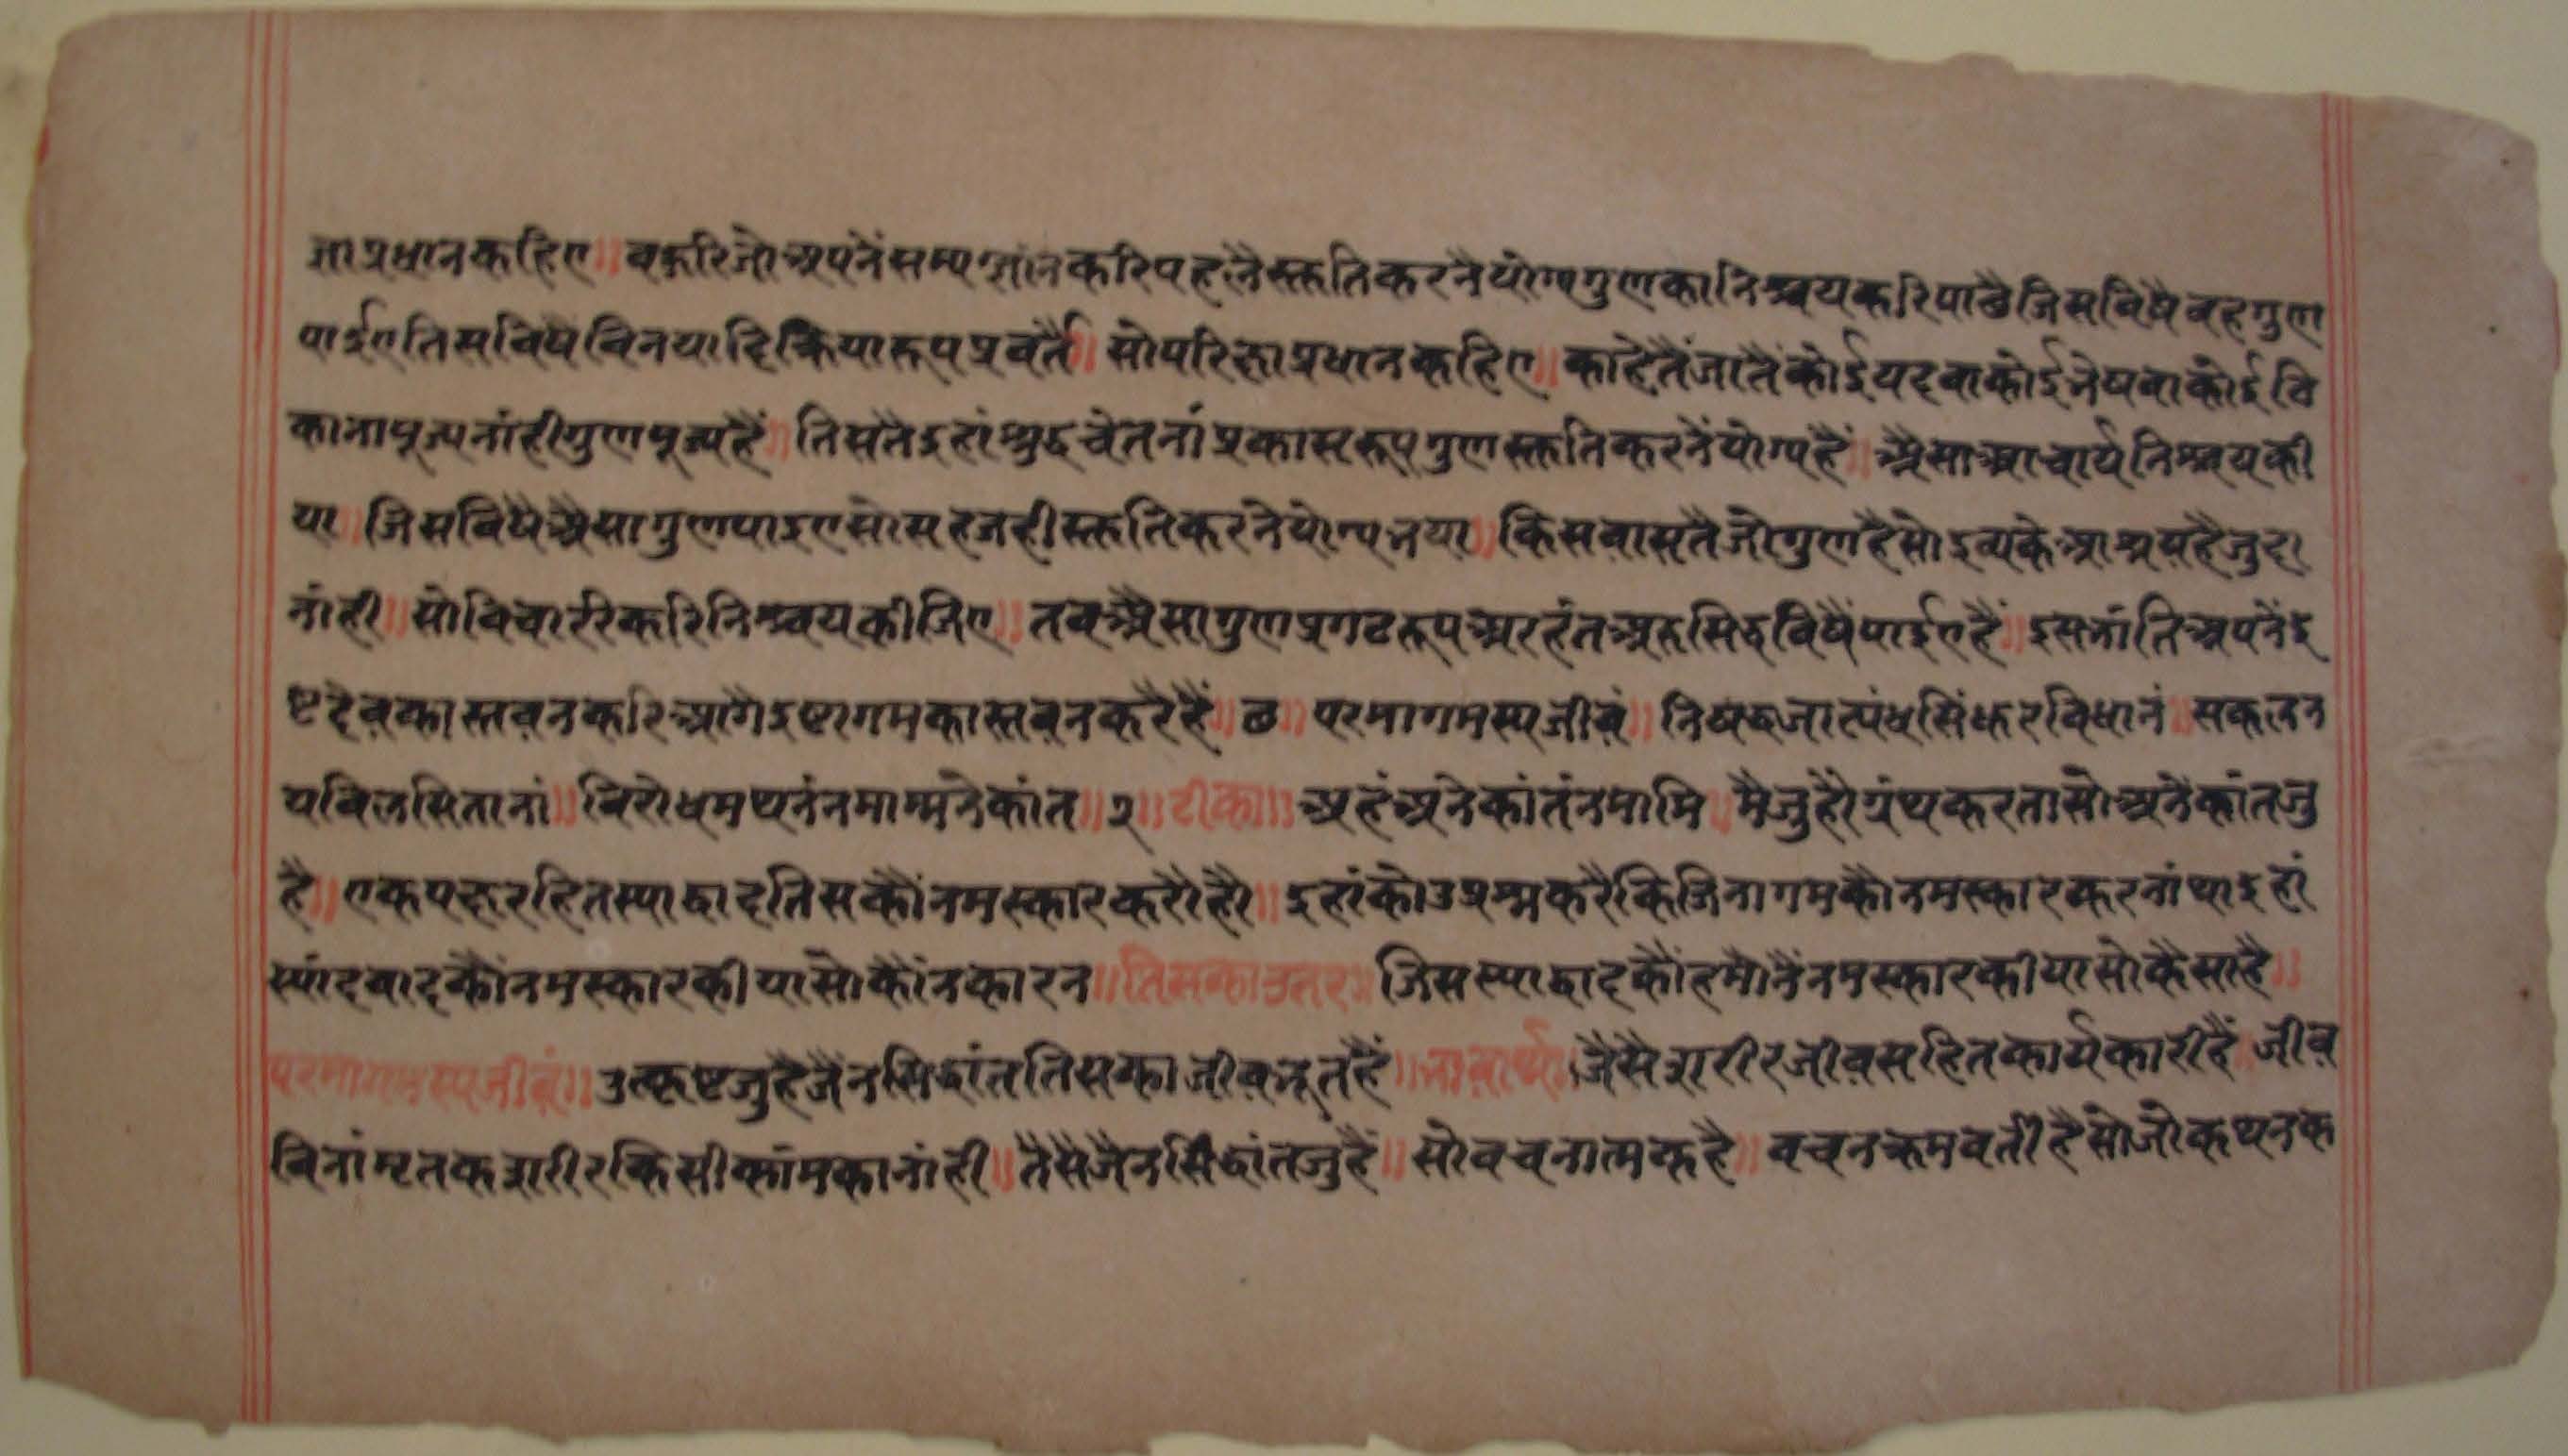 ज्ञाप्रधानकहिए॥ बहुरिजोअपनेंसम्यग्ज्ञांनकरिपहलैस्तुतिकरनैयोग्यगुणकानिश्चयकरिपाछैजिसविषैवहगुण
पाईएतिसविषैविनयादिक्रियारूपप्रवर्तै॥ सोपरिक्षाप्रधानकहिए॥ काहेतैंजातैंकोईयदवाकोईभेषवाकोईवि
कानापूज्यनांहीगुणपूज्यहैं॥ तिसतैइहांशुद्धचेतनांप्रकासरूपगुणस्तुतिकरनेंयोग्यहैं॥ अैसाआचार्यनिश्चयकी
या॥ जिसविषैअैसागुणपाइएसोसहजहीस्तुतिकरनेयोग्यभया॥ किसवासतैजोगुणहैसोद्रव्यकेआश्रयहैजुदा
नांही॥ सोविचाररिकरिनिश्चयकीजिए॥ तबअैसागुणप्रगटरूपअरहंतअरुसिद्धविषैंपाईएहैं॥ इसभांतिअपनेंइ
ष्टदेवकास्तवनकरिआगैइष्टागमकास्तवनकरैहैं॥ छ॥ परमागमस्यजीवं॥ निषद्धजात्यंधसिंधुरविधानं॥ सकलन
यविलसितानां॥ विरोधमथनंनमाम्मनेकांत॥ २॥ टीका॥ अहंअनेकांतंनमामि॥ मैजुहौंग्रंथकरतासोअनेकांतजु
है॥ एकपक्षरहितस्याद्वादतिसकौंनमस्कारकरौंहौ॥ इहांकोउप्रश्नकरैकिजिनागमकौंनमस्कारकरनांथाइहां
स्यांदवादकौंनमस्कारकीयासोकौंनकारन॥ तिसकाउतर॥ जिसस्याद्वादकौंहमौंनैंनमस्कारकीयासोकैसाहै॥
परमागमस्यजीवं॥ उत्कृष्टजुहैजैंनसिद्धांततिसकाजीवभूतहैं॥ भावार्थ॥ जैसैशरीरजीवसहितकार्यकारीहैं॥ जीव
विनांमृतकशरीरकिसीकांमकानांही॥ तैसैजैनसिद्धांतजुहैं॥ सोवचनात्मकहै॥ वचनक्रमवर्तीहैसोजोकथनक